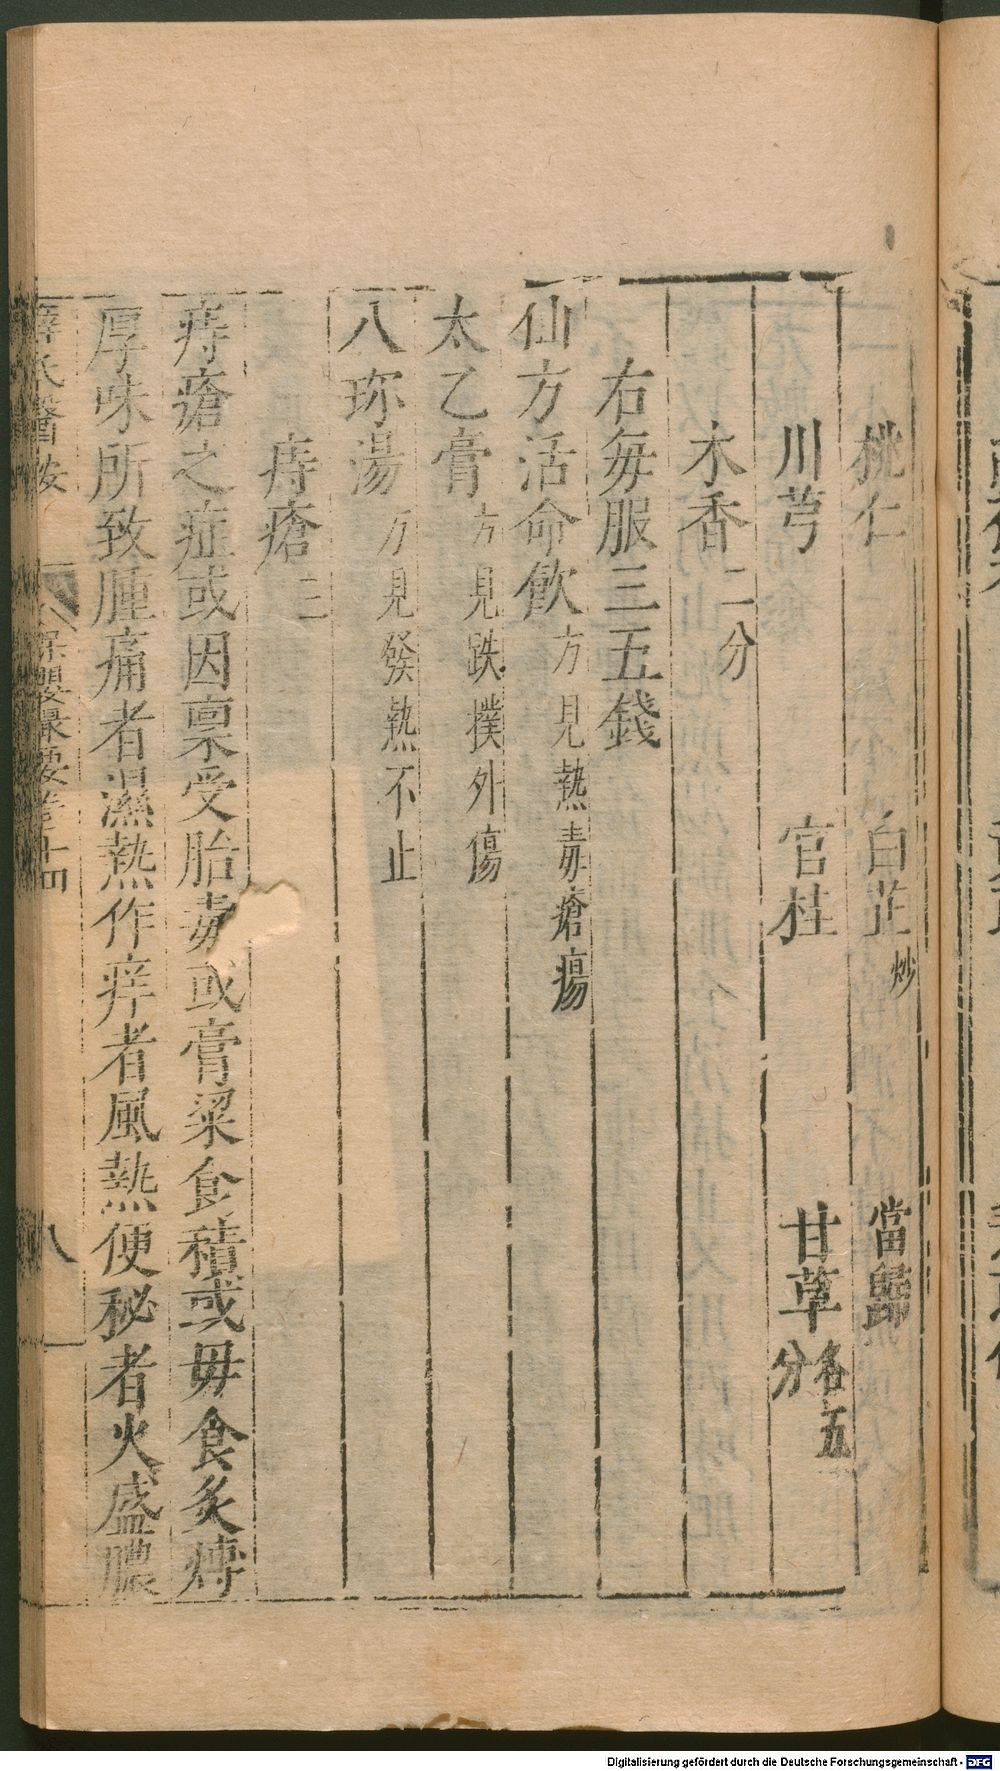 桃仁 白芷炒 當歸
川芎 官桂 甘草各五分
木香二分
右每服三五錢
仙方活命飲方見熱毒瘡瘍
太乙膏方見跌撲外傷
八珍湯方見發熱不止
痔瘡三
痔瘡之症或因稟受胎毒或膏粱食積或母食炙煿
厚味所致腫痛者濕熱作痒者風熱便秘者火盛膿
薛氏醫按 保嬰撮要卷十四 八
Digitalisierung gefördert durch die Deutsche Forschungsgemeinschaft - DFG